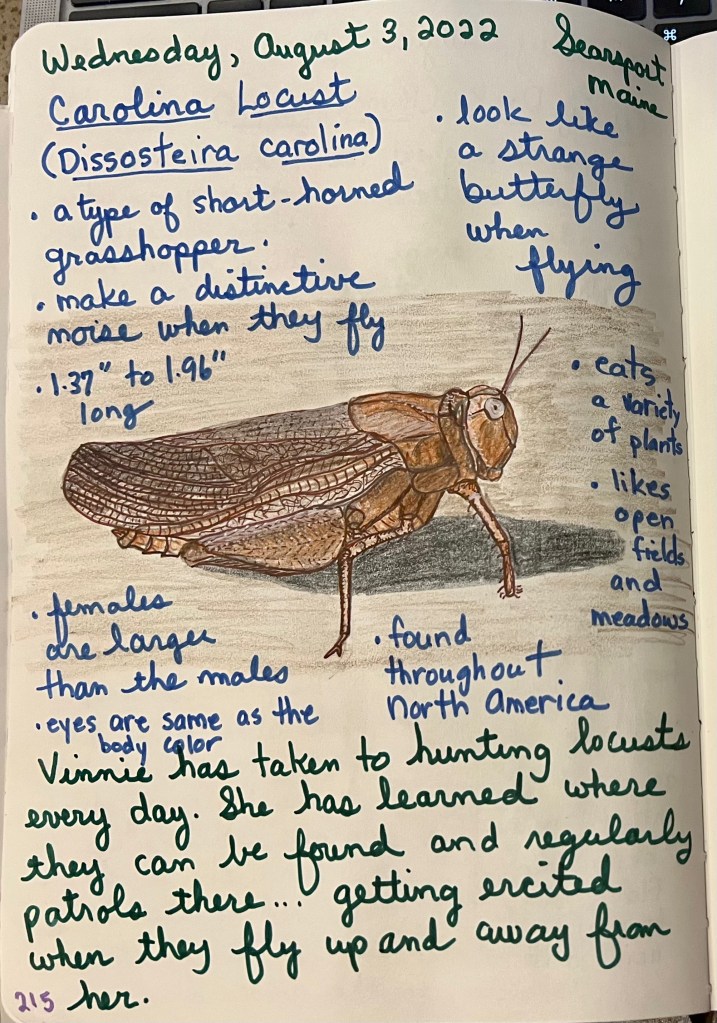 Wednesday, August 3, 2022
Searsport
Maine
Carolina Locust
(Dissosteira carolina)
• a type of short-horned
grasshopper.
• make a distinctive
noise when they fly
• 1.37" to 1.96"
long
• look like
a strange
butterfly
when
flying
• eats
a variety
of plants
• likes
open
fields
and
meadows
• females
are larger
than the males
• eyes are same as the
body color
• found
throughout
North America
Vinnie has taken to hunting locusts
every day. She has learned where
they can be found and regularly
patrols there... getting excited
when they fly up and away from
her.
215
⌘